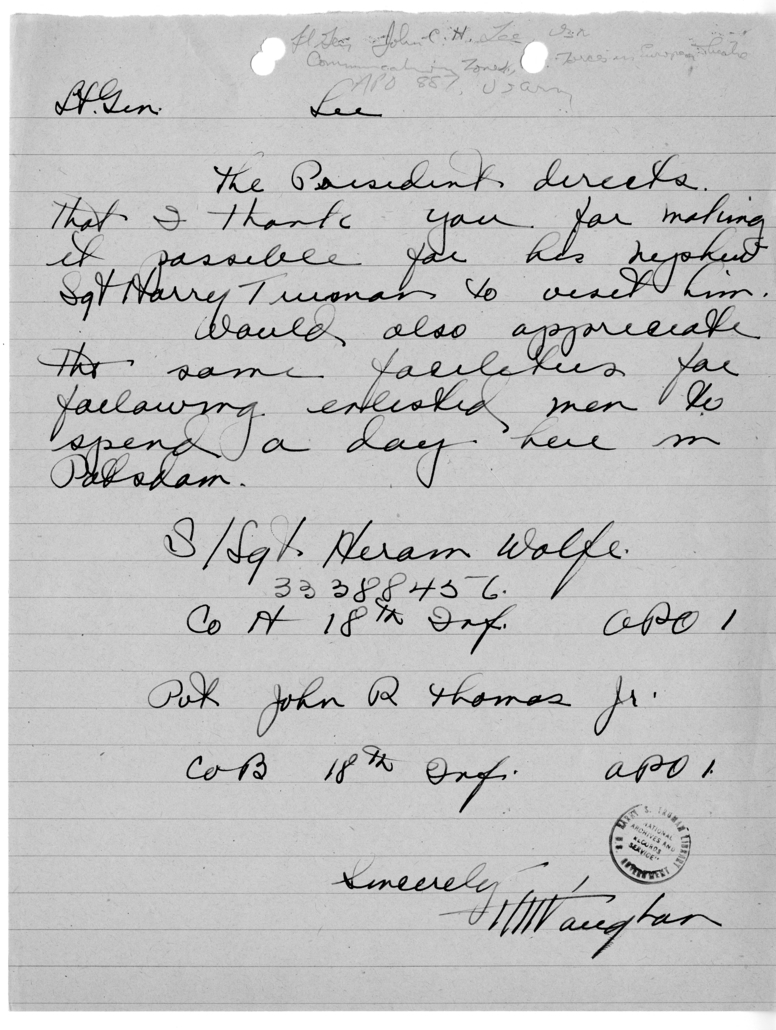 Lt Gen John C. H. Lee USA
Communications Zones, Forces in European Theatre
APO 887, US Army
Lt. Gen. Lee
The President directs.
that I thank you for making
it possible for his nephew
Sgt Harry Truman to visit him.
Would also appreciate
the same facilities for
following enlisted men to
spend a day here in
Potsdam.
S/Sgt. Heram Wolfe.
33388456.
Co H 18th Inf. APO 1
Pvt John R Thomas Jr.
Co B 18th Inf. APO 1.
HARRY S. TRUMAN LIBRARY
NATIONAL
ARCHIVES AND
RECORDS
SERVICE
U.S. GOVERNMENT
Sincerely
HHVaughan